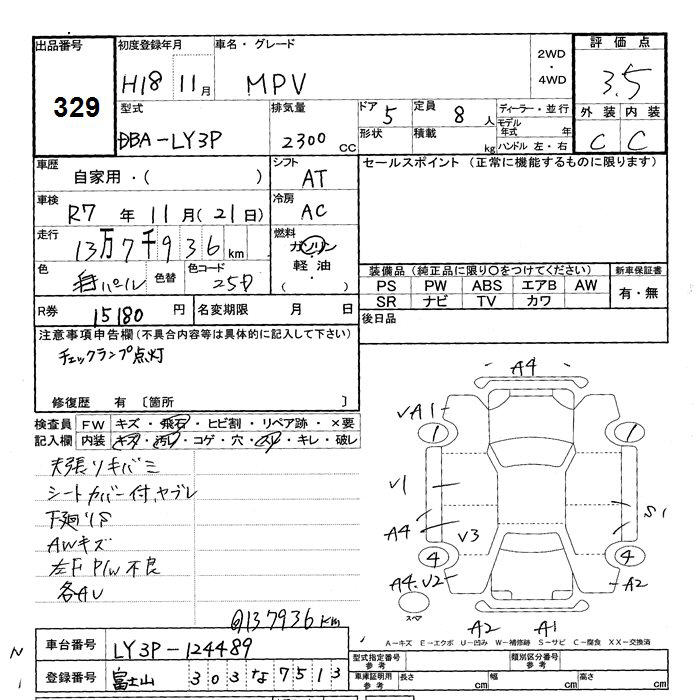 出品番号 初度登録年月 車名・グレード 2WD・4WD 評価点
329 H18 11月 MPV 3.5
型式 排気量 ドア 5 定員 8人 ディーラー・並行 外装 内装
DBA-LY3P 2300 CC 形状 積載 kg モデル年式 年 C C
ハンドル 左・右
車歴 シフト セールスポイント (正常に機能するものに限ります)
自家用・( ) AT
車検 冷房
R7年 11月(21日) AC
走行 燃料
13万7千936km ガソリン
色 パール 色替 色コード 25D 軽油・( )
装備品 (純正品に限り○をつけてください) 新車保証書
PS PW ABS エアB AW 有・無
SR ナビ TV カワ
R券 15180円 名変期限 月 日 後日品
注意事項申告欄 (不具合内容等は具体的に記入して下さい)
チェックランプ点灯
修復歴 有 〔箇所 〕
検査員 FW キズ・飛石・ヒビ割・リペア跡・×要
記入欄 内装 キズ・汚れ・コゲ・穴・スレ・キレ・破レ
天張リキバミ
シートカバー付、ヤブレ
下廻りS
AWキズ
左F P/W 不良
各AU
@137936km
A4
VA1
1 1
V1
S1
A4 V3
4 4
A4.V2 A2
スペア
A2 A1
A-キズ E-エクボ U-凹み W-補修跡 S-サビ C-腐食 XX-交換済
車台番号 LY3P-124489
型式指定番号 参考 類別区分番号 参考
登録番号 富士山 303な7513
車庫証明用 参考 長さ cm 幅 cm 高さ cm
N